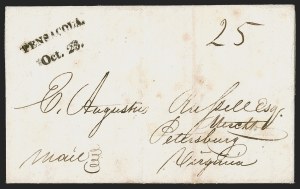 PENSACOLA.
Oct. 23.
25
E. Augustus Russell Esq.
Petersburg
Virginia
Mail